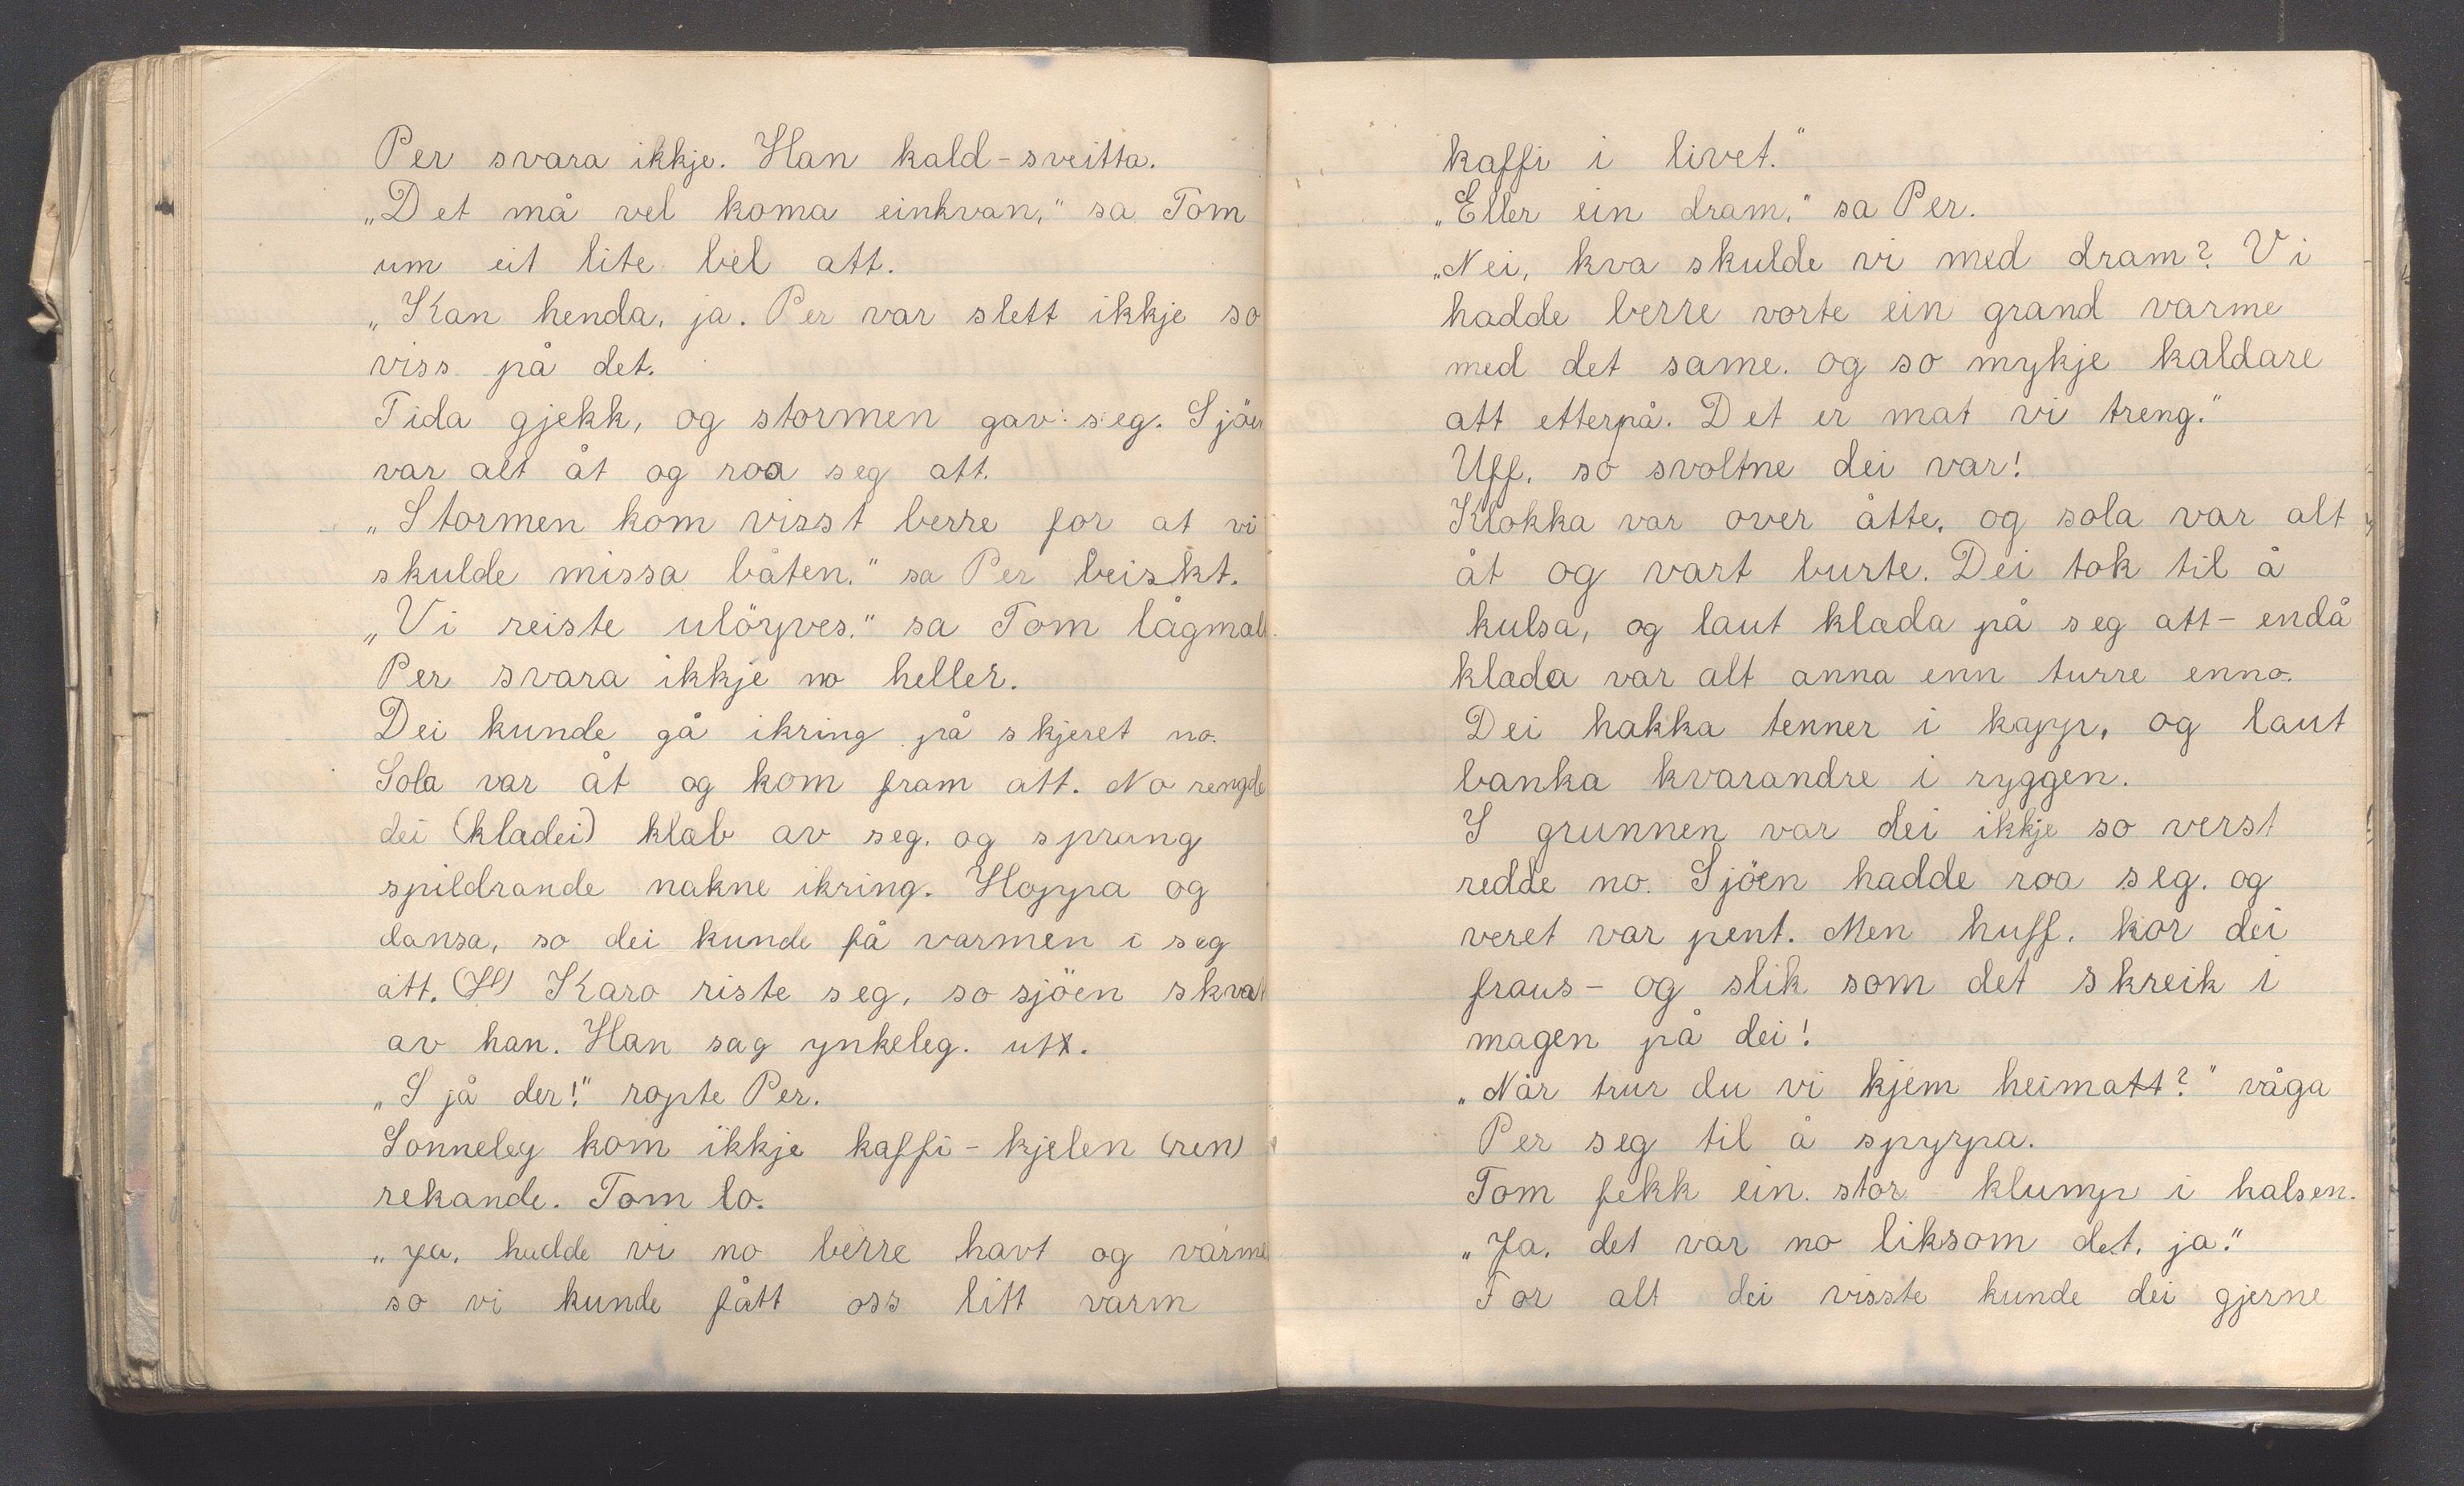 Per svara ikkje. Han kald-sveitta.
„Det må vel koma einkvan," sa Tom
um eit lite bel att.
„Kan henda, ja. Per var slett ikkje so
viss på det.
Tida gjekk, og stormen gav seg. Sjöen
var alt åt og roa seg att.
„Stormen kom visst berre for at vi
skulde missa båten." sa Per beiskt.
„Vi reiste ulöyves." sa Tom lågmalt.
Per svara ikkje no heller.
Dei kunde gå ikring på skjeret no.
Sola var åt og kom fram att. No rengde
dei (kladei) klab av seg. og sprang
spildrande nakne ikring. Hoppa og
dansa, so dei kunde få varmen i seg
att. Karo riste seg, so sjöen skvatt
av han. Han sag ynkeleg. utt.
„Sjå der!" ropte Per.
Sonneleg kom ikkje kaffi-kjelen (ren)
rekande. Tom lo.
„Ja, hadde vi no berre havt og varme
so vi kunde fått oss litt varm
kaffi i livet."
„Eller ein dram," sa Per.
„Nei, kva skulde vi med dram? Vi
hadde berre vorte ein grand varme
med det same. og so mykje kaldare
att etterpå. Det er mat vi treng."
Uff, so svoltne dei var!
Klokka var over åtte, og sola var alt
åt og vart burte. Dei tok til å
kulsa, og laut klæda på seg att - endå
klada var alt anna enn turre enno.
Dei hakka tenner i kapp, og laut
banka kvarandre i ryggen.
I grunnen var dei ikkje so verst
redde no. Sjöen hadde roa seg. og
veret var pent. Men huff, kor dei
fraus - og slik som det skreik i
magen på dei!
„Når trur du vi kjem heimatt?" våga
Per seg til å spyrpa.
Tom fekk ein stor klump i halsen.
„Ja, det var no liksom det, ja."
For alt dei visste kunde dei gjerne